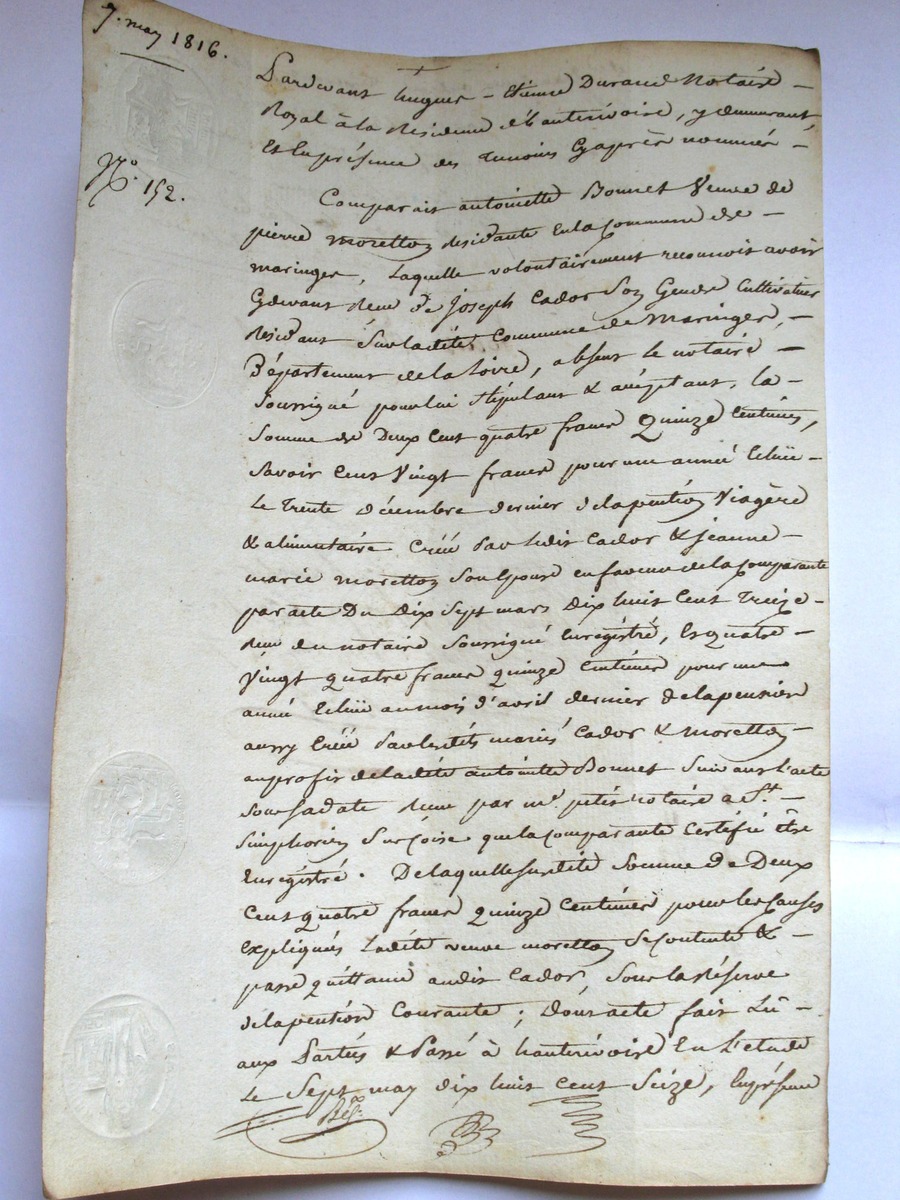 7. may 1816.
N.o 152.
Pardevant hugues - Etienne Durand Notaire -
Royal à la Residence d'hauterivoire, y demeurant,
Et En présence des temoins Cy après nommés -
Comparait antoinette Bonnet Veuve de
pierre Moretton residante En la Commune de -
maringes, Laquelle volontairement reconnoit avoir
Cy devant Reçu de Joseph Cador Son Gendre Cultivateur
Residant Sur ladite Commune de Maringes, -
Département de la Loire, absent le notaire -
Soussigné pour lui Stipulant & acceptant, la -
Somme de Deux Cent quatre francs Quinze Centimes,
Savoir Cent Vingt francs pour une année Echüe -
Le Trente décembre dernier de la pention Viagère
& alimentaire Créé par Ledit Cador & jeanne -
marie moretton Son Epouse en faveur de la Comparante
par acte Du Dix Sept mars Dix huit Cent Treize -
Reçu du notaire Soussigné Enregistré, Et quatre -
Vingt quatre francs quinze Centimes pour une
année Echüe au mois d'avril dernier de la pension
aussy Créé par lesdits mariés Cador & moretton -
au profit de ladite antoinette Bonnet Suivant L'acte
Sous Sa date Reçu par m.e petit notaire a S.t -
Simphorien Sur Coise que la Comparante Certifie être
Enregistré. De laquelle Susdite Somme de Deux
Cent quatre francs quinze Centimes pour les Causes
Expliquées Ladite veuve moretton Se Contente & -
passe quittance audit Cador, Sous la Réserve
de la pention Courante; Dont acte fait Lû -
aux Parties & Passé à hauterivoire En L'etude
Le Sept may dix huit Cent Seize, En présence